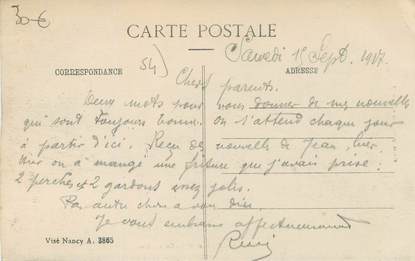 30 €
CARTE POSTALE
54)
Samedi 15 Sept. 1917
CORRESPONDANCE
ADRESSE
Chers parents.
Deux mots pour vous donner de mes nouvelles
qui sont toujours bonnes. On s'attend chaque jour
à partir d'ici. Reçu de nouvelle de Jean, hier.
hier on a mangé une friture que j'avais prise :
2 perches et 2 gardons assez jolis.
Pas autre chose a vous dire.
Je vous embrasse affectueusement
Visé Nancy A. 3865